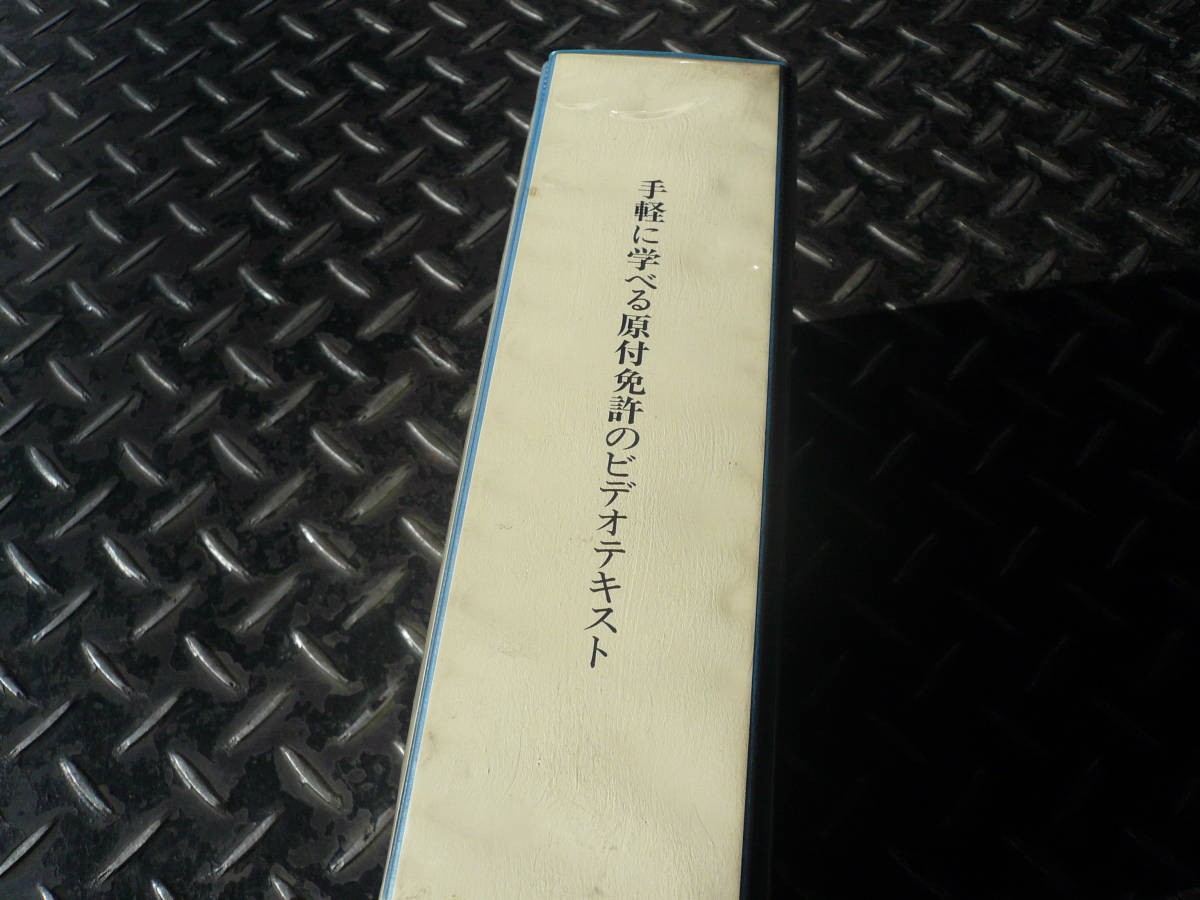 手軽に学べる原付免許のビデオテキスト